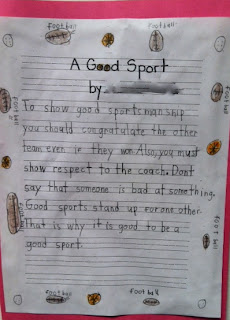 football
football
A Good Sport
by
To show good sportsmanship
you should congratulate the other
team even if they won. Also, you must
show respect to the coach. Dont
say that someone is bad at something.
Good sports stand up for one other.
That is why it is good to be a
good sport.
football
football
football
football